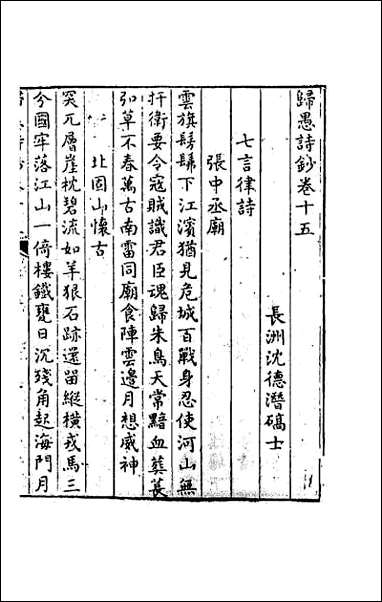 歸愚詩鈔卷十五
長洲沈德潛碻士
七言律詩
張中丞廟
雲旗髣髴下江濱猶見危城百戰身忍使河山無
扞衛要令寇賊識君臣魂歸朱鳥天常黯血葬萇
弘草不春萬古南雷同廟食陣雲邊月想威神
北固山懷古
突兀層崖枕碧流如羊狠石跡還留縱橫戎馬三
今國牢落江山一倚樓鐵甕日沉殘角起海門月